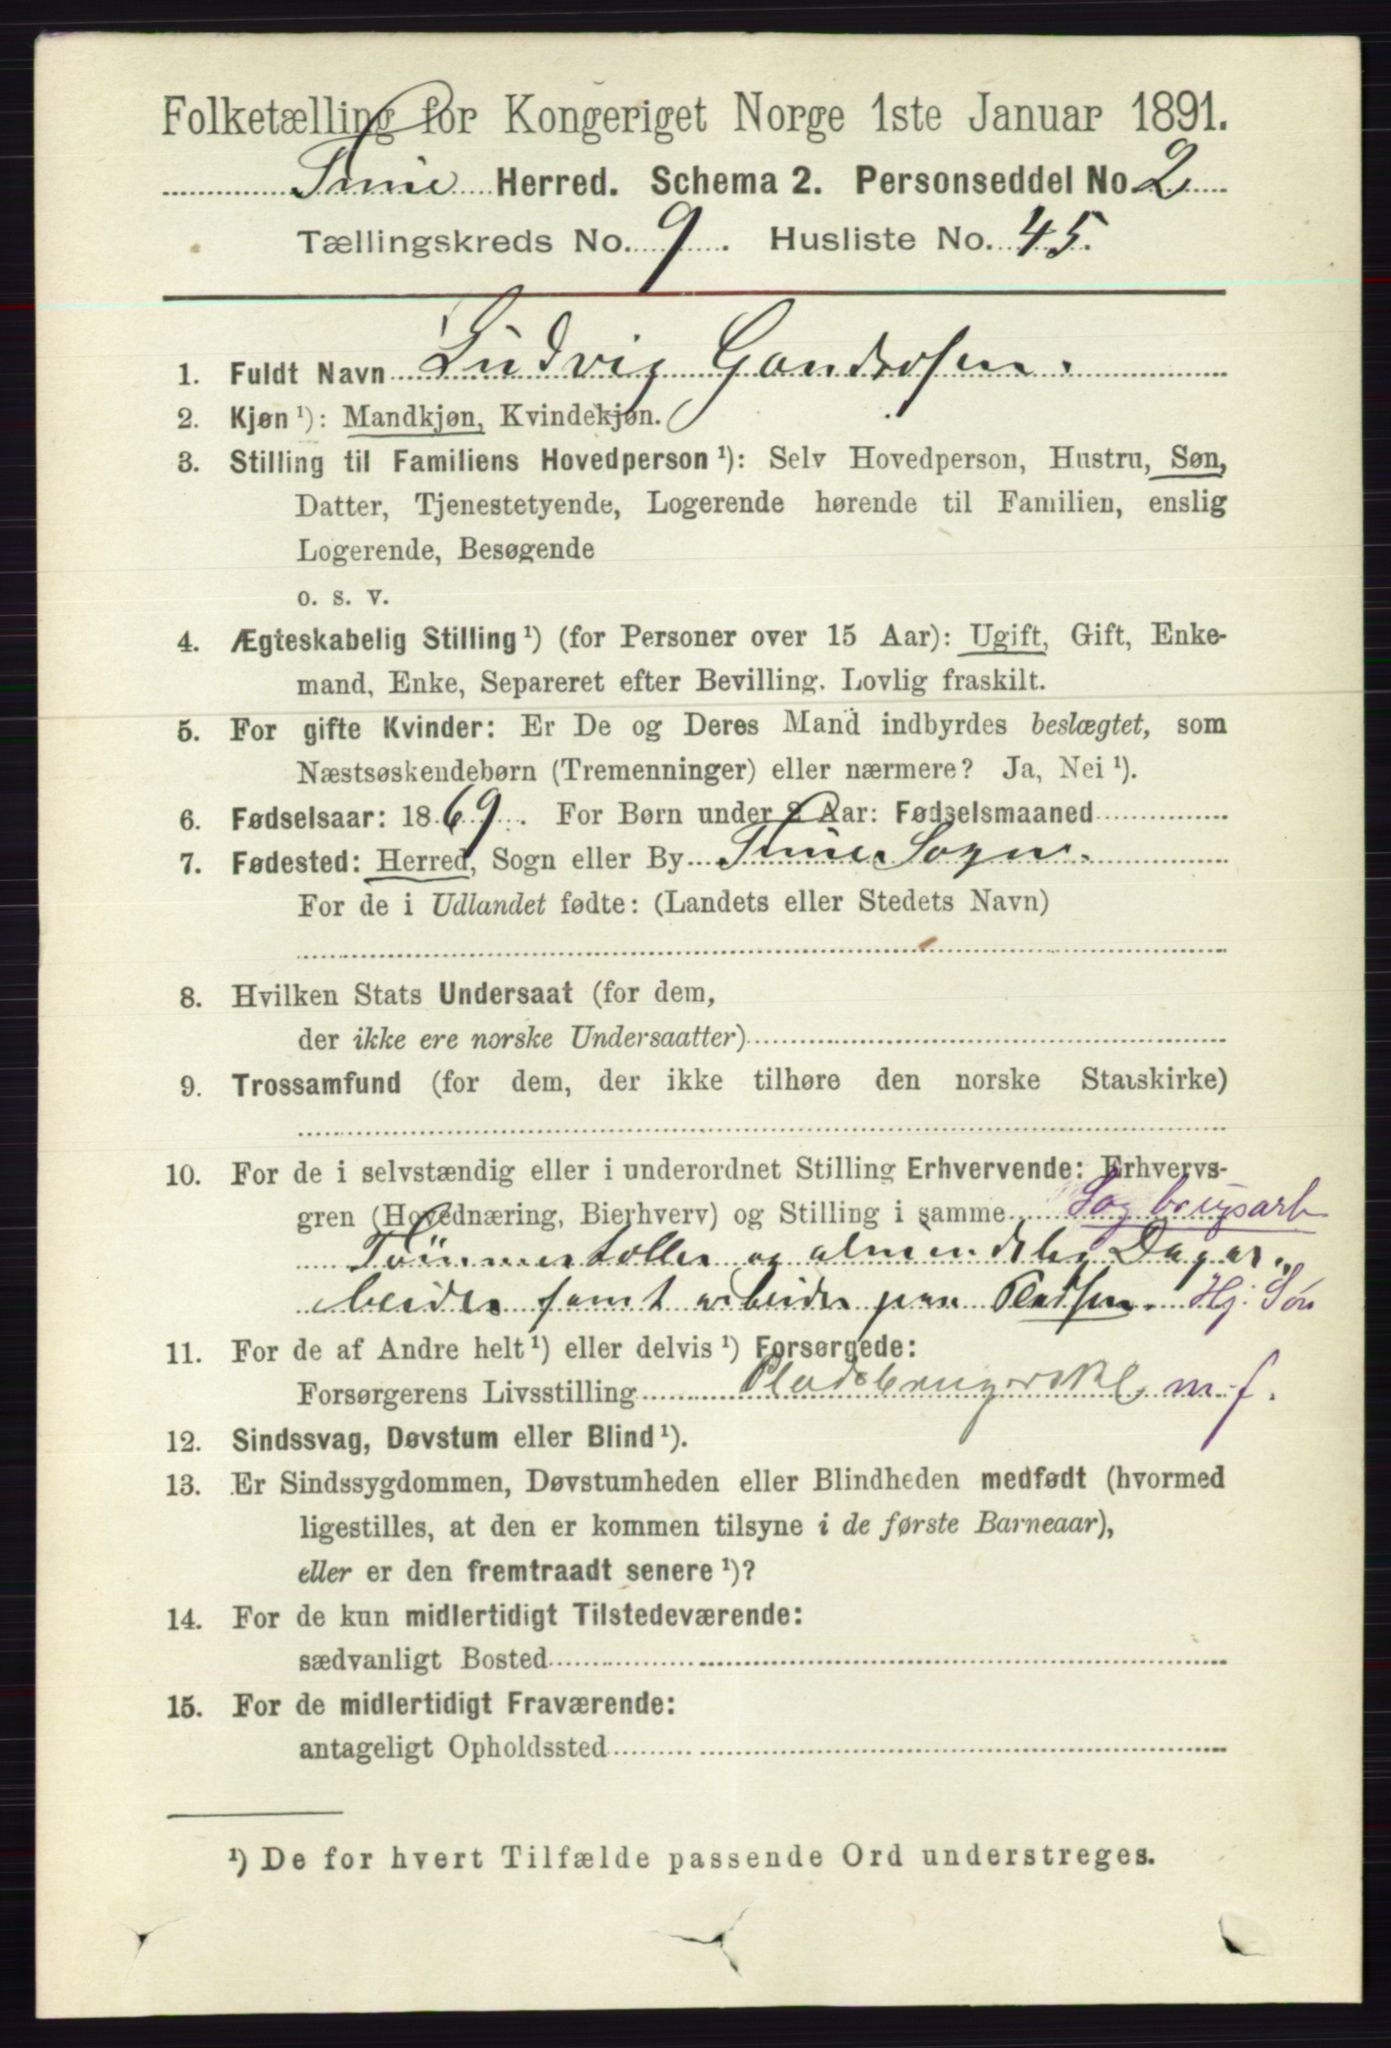 Folketælling for Kongeriget Norge 1ste Januar 1891.
Tune Herred. Schema 2. Personseddel No. 2
Tællingskreds No. 9. Husliste No. 45.
1. Fuldt Navn Ludvig
2. Kjøn ¹): Mandkjøn, Kvindekjøn.
3. Stilling til Familiens Hovedperson ¹): Selv Hovedperson, Hustru, Søn,
Datter, Tjenestetyende, Logerende hørende til Familien, enslig
Logerende, Besøgende
o. s. v.
4. Ægteskabelig Stilling ¹) (for Personer over 15 Aar): Ugift, Gift, Enke-
mand, Enke, Separeret efter Bevilling. Lovlig fraskilt.
5. For gifte Kvinder: Er De og Deres Mand indbyrdes beslægtet, som
Næstsøskendebørn (Tremenninger) eller nærmere? Ja, Nei ¹).
6. Fødselsaar: 1869. For Børn under 2 Aar: Fødselsmaaned
7. Fødested: Herred, Sogn eller By Tune Sogn.
For de i Udlandet fødte: (Landets eller Stedets Navn)
8. Hvilken Stats Undersaat (for dem,
der ikke ere norske Undersaatter)
9. Trossamfund (for dem, der ikke tilhøre den norske Statskirke)
10. For de i selvstændig eller i underordnet Stilling Erhvervende: Erhvervs-
gren (Hovednæring, Bierhverv) og Stilling i samme Sagbrugsarb
Tømmertoller og almindelig Dagar-
beider samt arbeider paa Pladsen. Hj. Søn
11. For de af Andre helt ¹) eller delvis ¹) Forsørgede:
Forsørgerens Livsstilling m. f.
12. Sindssvag, Døvstum eller Blind ¹).
13. Er Sindssygdommen, Døvstumheden eller Blindheden medfødt (hvormed
ligestilles, at den er kommen tilsyne i de første Barneaar),
eller er den fremtraadt senere ¹)?
14. For de kun midlertidigt Tilstedeværende:
sædvanligt Bosted
15. For de midlertidigt Fraværende:
antageligt Opholdssted
¹) De for hvert Tilfælde passende Ord understreges.